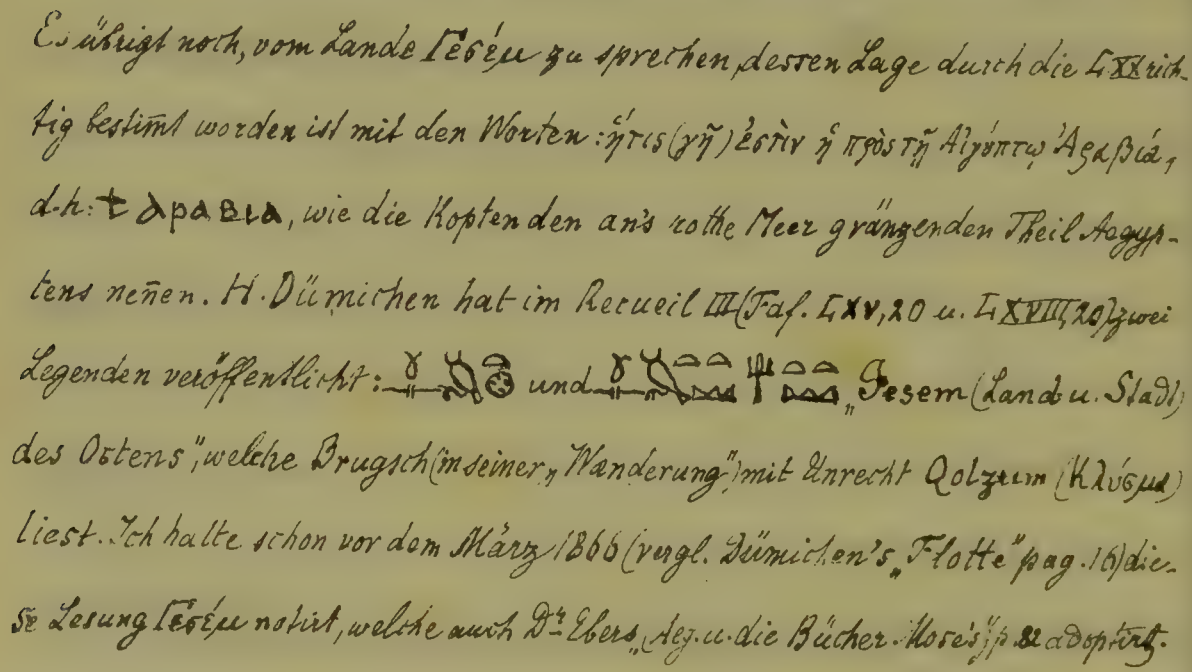 Es übrigt noch, vom Lande Γεσέμ zu sprechen, dessen Lage durch die LXX rich-
tig bestim̄t worden ist mit den Worten: ἥτις (γῆ) ἐστὶν ἡ πρὸς τῇ Αἰγύπτῳ Ἀραβιά,
d.h: ϯ ⲁⲣⲁⲃⲓⲁ, wie die Kopten den an's rothe Meer gränzenden Theil Aegyp-
tens nen̄en. H. Dümichen hat im Recueil III (Taf. LXV, 20 u. LXVIII, 20) zwei
Legenden veröffentlicht: und „Gesem (Land u. Stadt)
des Ostens", welche Brugsch (in seiner „Wanderung") mit Unrecht Qolzum (Κλύσμα)
liest. Ich hatte schon vor dem März 1866 (vergl. Dümichen's „Flotte" pag. 16) die-
se Lesung Γεσέμ notirt, welche auch Dr. Ebers „Aeg. u. die Bücher Mose's" p. adoptirt.